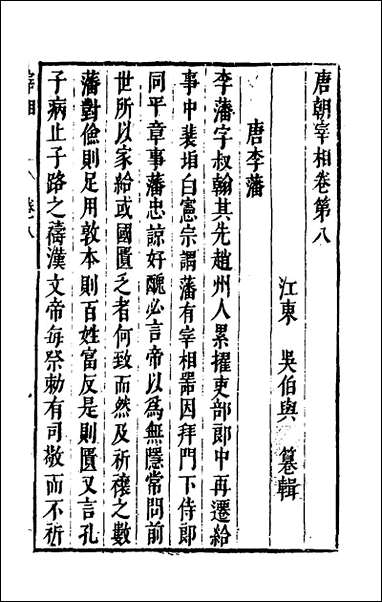 唐朝宰相卷第八
江東　吳伯與　纂輯
唐李藩
李藩字叔翰其先趙州人累擢吏部郎中再遷給
事中裴垍白憲宗謂藩有宰相器因拜門下侍郎
同平章事藩忠諒好醜必言帝以爲無隱常問前
世所以家給或國匱乏者何致而然及祈禳之數
藩對儉則足用敦本則百姓富反是則匱又言孔
子病止子路之禱漢文帝每祭勅有司敬而不祈
宰相
卷八